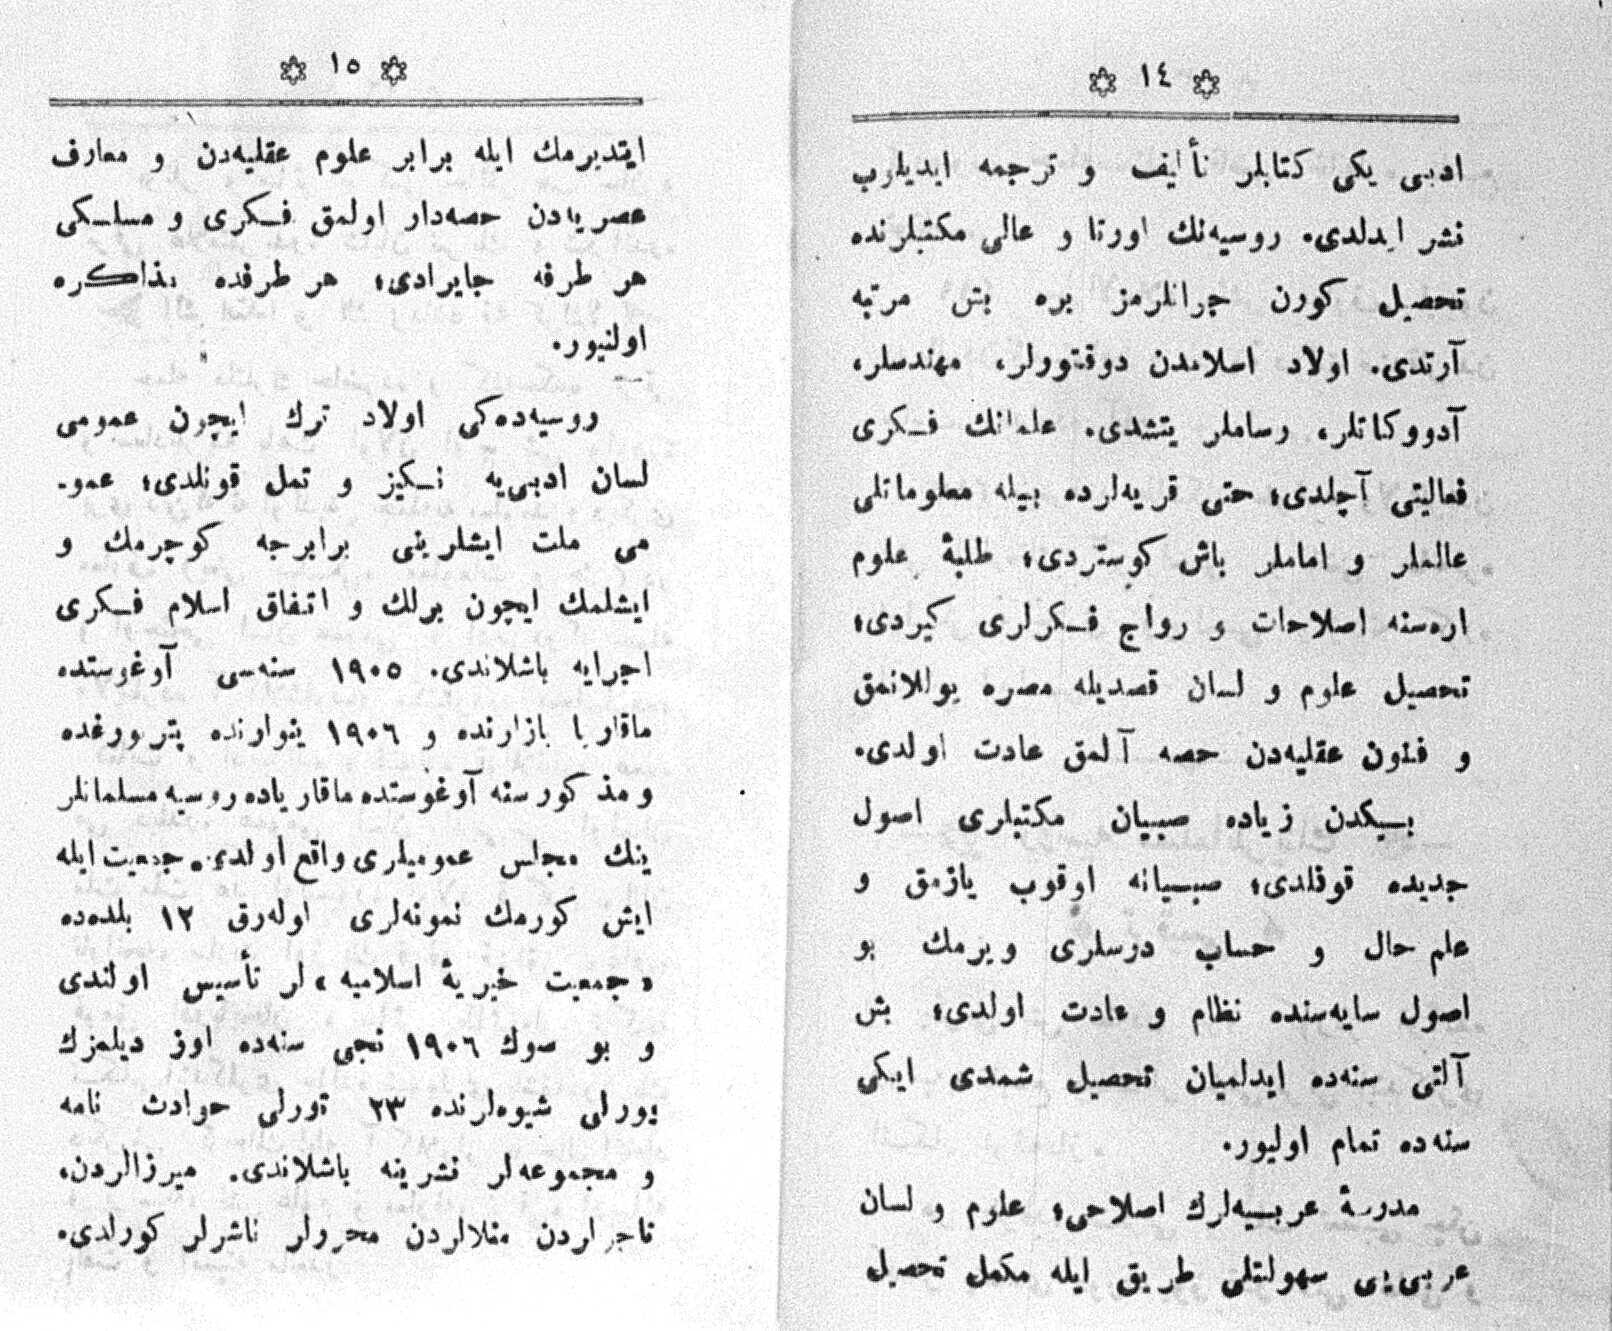 ١٤
ادبی یكی كتابلر تألیف و ترجمه ایدیلوب
نشر ایدلدی. روسیه‌نك اورتا و عالی مكتبلرنده
تحصیل كورن جوانلرمز بره بش مرتبه
آرتدی. اولاد اسلامدن دوقتوولر، مهندسلر،
آدووكاتلر، رساملر یتشدی. علمانك فـكری
فعالیتی آچلدی؛ حتی قریه‌لرده بیله معلوماتلی
عالملر و اماملر باش كوستردی؛ طلبۀ علوم
اره‌سنه اصلاحات و رواج فـكرلری كیردی؛
تحصیل علوم و لسان قصدیله مصره یوللانمق
و فنون عقلیه‌دن حصه آلمق عادت اولدی.
بـیكدن زیاده صبیان مكتبلری اصول
جدیده قوقلدی؛ صبـیانه اوقوب یازمق و
علم حال و حساب درسلری ویرمك بو
اصول سایه‌سنده نظام و عادت اولدی؛ بش
آلتی سنه‌ده ایدلمیان تحصیل شمدی ایكی
سنه‌ده تمام اولیور.
مدرسۀ عربـیه‌لرك اصلاحی؛ علوم و لسان
عربی‌یی سهولتلی طریق ایله مكمل تحصیل
١٥
ایتدیرمك ایله برابر علوم عقلیه‌دن و معارف
عصریه‌دن حصه‌دار اولمق فـكری و مسلـكی
هر طرفه جایرادی؛ هر طرفده مذاكره
اولنیور.
روسیه‌ده‌كی اولاد ترك ایچون عمومی
لسان ادبی‌یه نـكیز و تمل قونلدی؛ عمو-
می ملت ایشلرینی برابرجه كوچرمك و
ایشلمك ایچون برلك و اتفاق اسلام فـكری
اجرایه باشلاندی. ١٩٠٥ سنه‌سی آوغوستده
ماقاریا بازارنده و ١٩٠٦ ینوارنده پتربورغده
و مذكور سنه آوغوستده ماقاریاده روسیه مسلمانلر
ینك مجلس عمومیلری واقع اولدی. جمعیت ایله
ایش كورمك نمونه‌لری اوله‌رق ١٢ بلده‌ده
«جمعیت خیریۀ اسلامیه» لر تأسیس اولندی
و بو صوك ١٩٠٦ نجی سنه‌ده اوز دیلمزك
یورلی شیوه‌لرنده ٢٣ تورلی حوادث نامه
و مجموعه‌لر نشرینه باشلاندی. میرزالردن،
تاجرلردن منلالردن محررلر ناشرلر كورلدی.